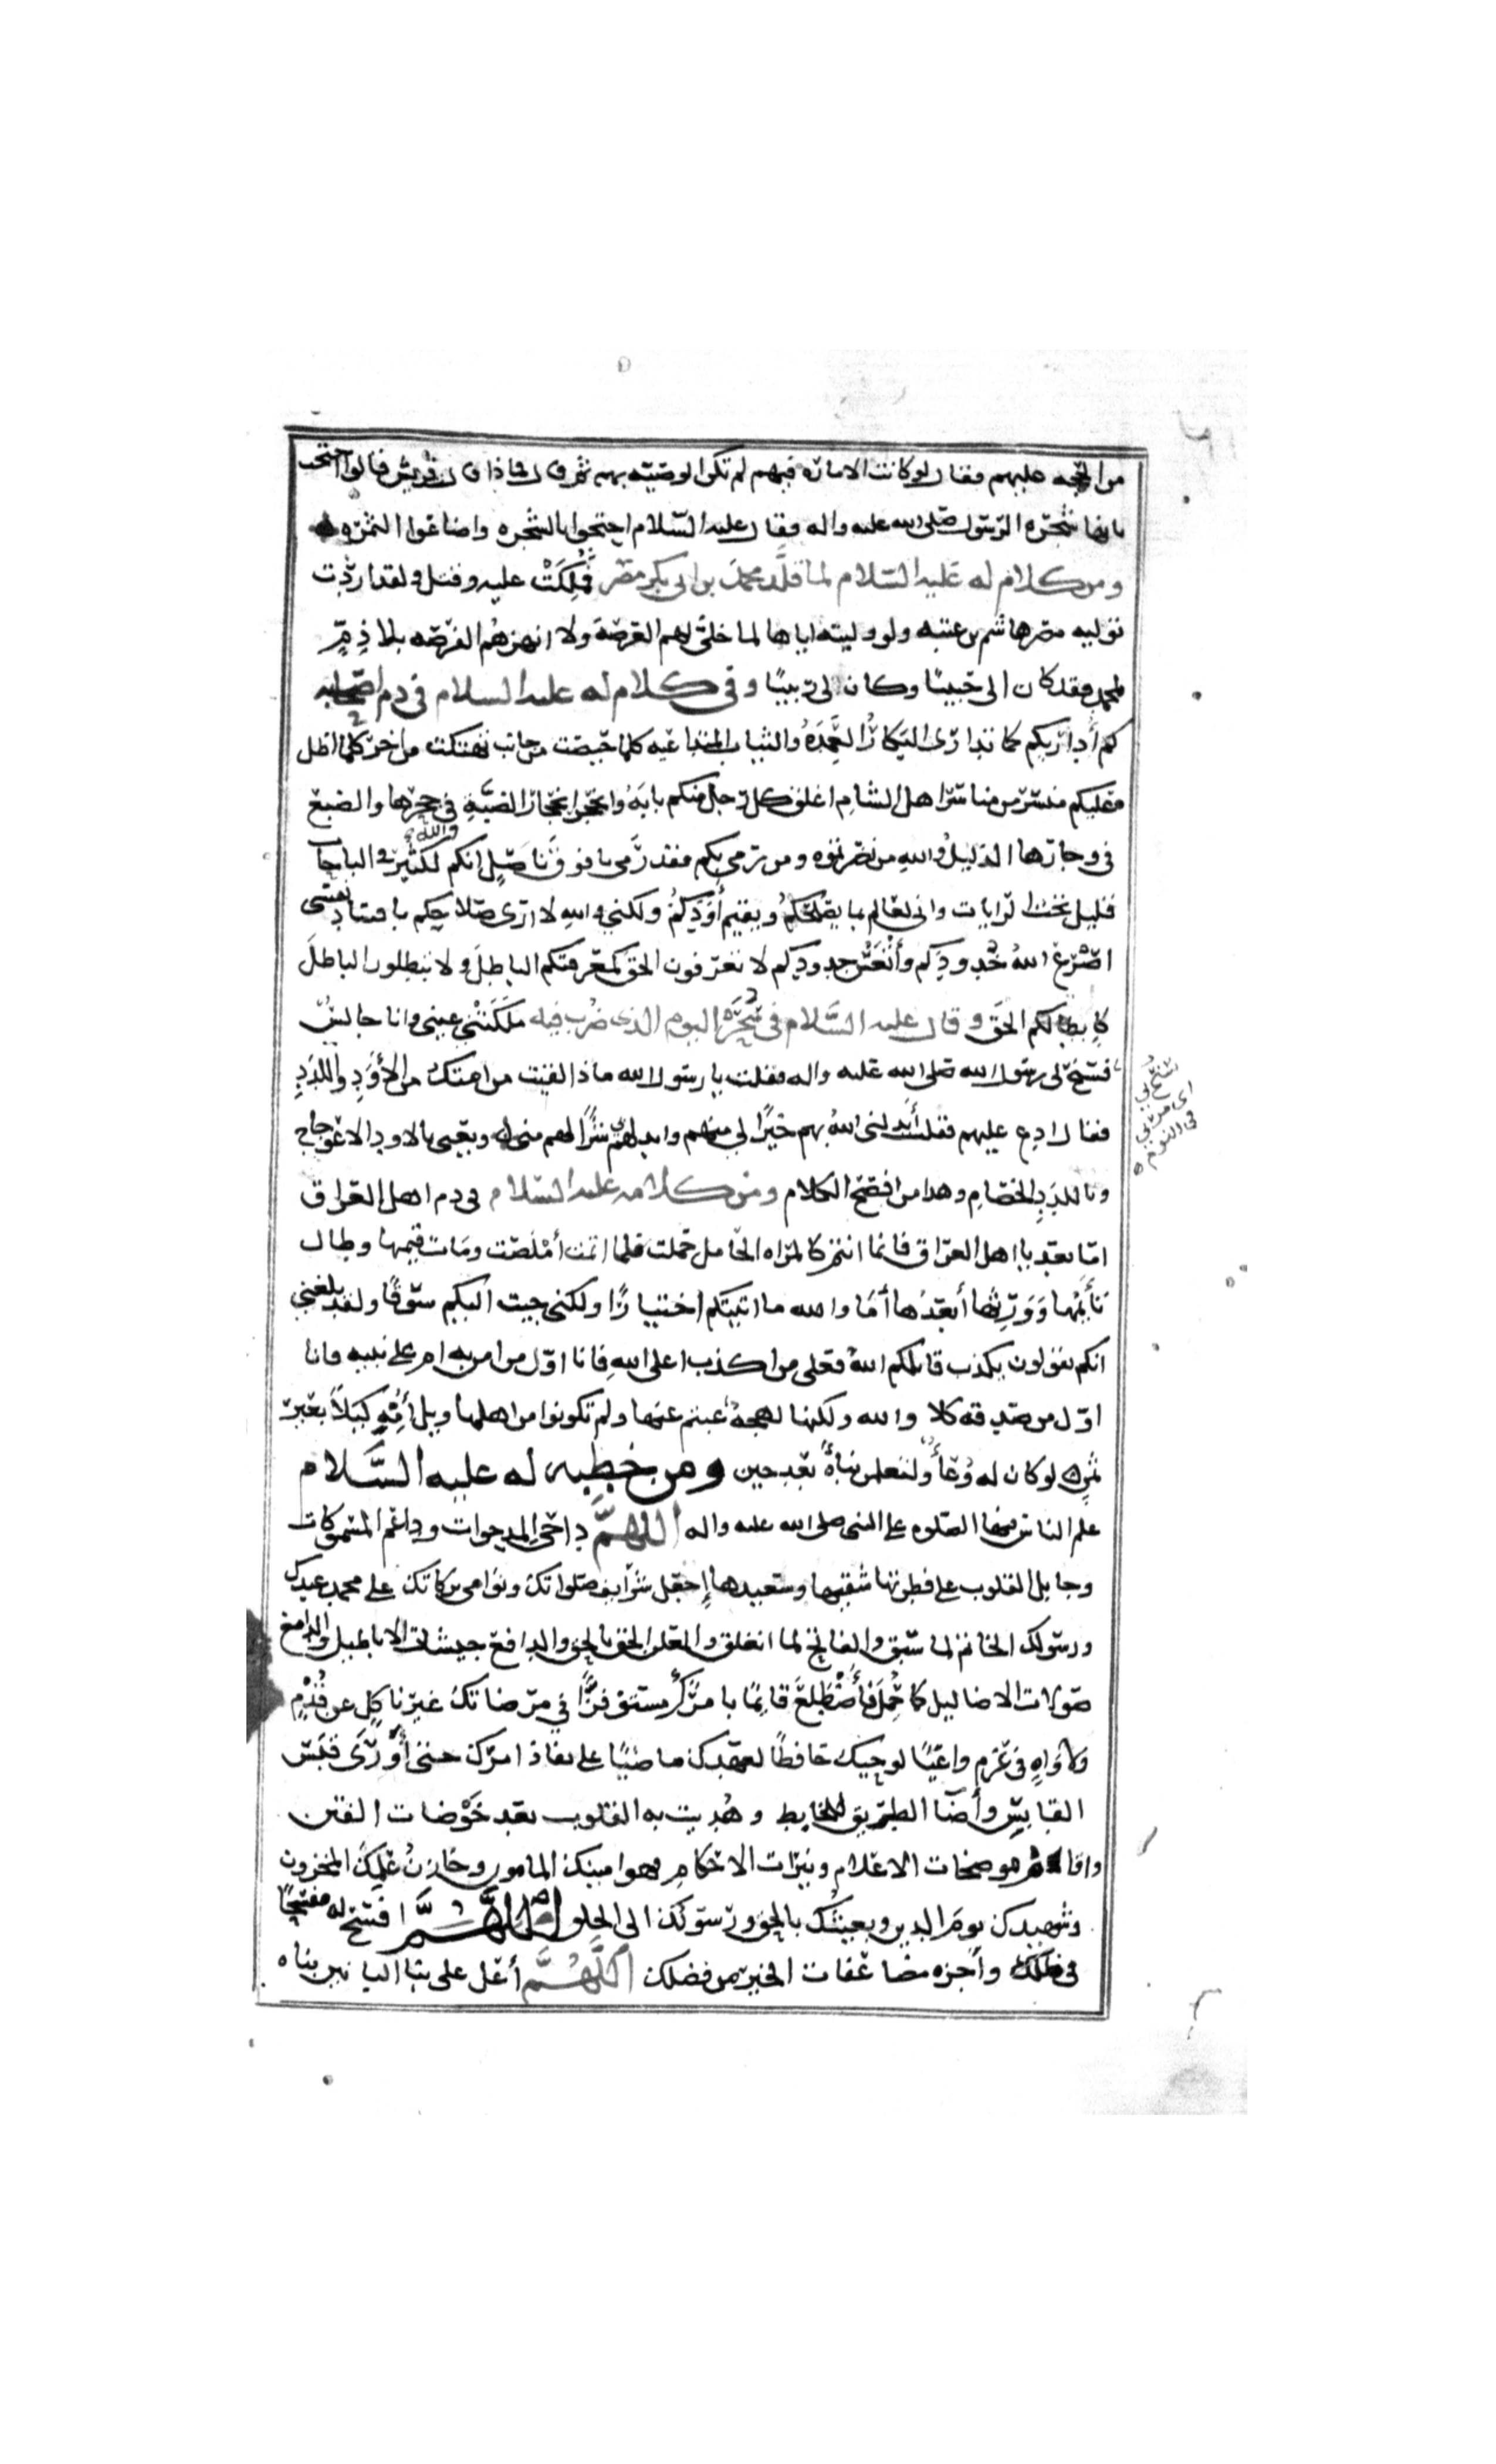 من الحجه عليهم فقال لو كانت الاماره فيهم لم تكن الوصيته بهم ثم قال فماذا قالت قريش قالوا احتجت
بانها شجره الرسول صلى الله عليه واله فقال عليه السلام احتجوا بالشجره واضاعوا الثمره
ومن كلام له عليه السلام لما قلد محمد بن ابى بكر مصر فملكت عليه وقتل ولقد اردت
توليه مصر هاشم بن عتبه ولو وليته اياها لما خلى لهم العرصة ولا انهزهم الفرصه بلا ذم
لمحمد فقد كان الى حبيبا وكان لى ربيبا وفى كلام له عليه السلام فى ذم اصحابه
كم أداريكم كما تدارى البكار العمدة والثياب المتداعيه كلما حيصت من جانب تهتكت من اخر كلما اظل
عليكم منسر من مناسر اهل الشام اغلق كل رجل منكم بابه وانجحر انجحار الضبة فى جحرها والضبع
فى وجارها الذليل والله من نصرتموه ومن رمى بكم فقد رمى بافوق ناصل انكم والله لكثير فى الباحات
قليل تحت الرايات وانى لعالم بما يصلحكم ويقيم أودكم ولكنى والله لا ارى صلاحكم بافساد نفسى
اضرع الله خدودكم وأتعس جدودكم لا تعرفون الحق كمعرفتكم الباطل ولا تبطلون الباطل
كابطالكم الحق وقال عليه السلام فى سحرة اليوم الذى ضرب فيه ملكتنى عينى وانا جالس
فسنح لى رسول الله صلى الله عليه واله فقلت يا رسول الله ماذا لقيت من امتك من الأود واللدد
فقال ادع عليهم فقلت أبدلنى الله بهم خيرا لى منهم وابدلهم شرا لهم منى ويعنى بالاود الاعوجاج
وباللدد الخصام وهدا من افصح الكلام ومن كلامه عليه السلام فى ذم اهل العراق
اما بعد يا اهل العراق فانما انتم كالمراه الحامل حملت فلما اتمت أملصت ومات قيمها وطال
تأيمها وورثها أبعدها أما والله ما اتيتكم اختيارا ولكنى جيت اليكم سوقا ولقد بلغنى
انكم تقولون يكذب قاتلكم الله فعلى من اكذب اعلى الله فانا اول من امن به ام على نبيه فانا
اول من صدقه كلا والله ولكنها لهجة غبتم عنها ولم تكونوا من اهلها ويل أمه كيلا بغير
ثمن لو كان له وعا ولتعلمن نبأه بعد حين ومن خطبه له عليه السلام
علم الناس فيها الصلوه على النبى صلى الله عليه واله اللهم داحى المدحوات وداعم المسموكات
وجابل القلوب على فطرتها شقيها وسعيدها إجعل شرايف صلواتك ونوامى بركاتك على محمد عبدك
ورسولك الخاتم لما سبق والفاتح لما انغلق والمعلن الحق بالحق والدافع جيشات الاباطيل والدامغ
صولات الاضاليل كما حمل فأضطلع قائما بامرك مستوفزا فى مرضاتك غير ناكل عن قدم
ولا واه فى عزم واعيا لوحيك حافظا لعهدك ماضيا على نفاذ امرك حتى أورى قبس
القابس وأضآ الطريق للخابط وهديت به القلوب بعد خوضات الفتن
واقام موضحات الاعلام ونيرات الاحكام فهو امينك المامون وخازن علمك المخزون
وشهيدك يوم الدين وبعيثك بالحق ورسولك الى الخلق اللهم افسح له مفتسحا
فى ظلك وأجزه مضاعفات الخير من فضلك اللهم أعل على بنا البانين بناه
سنح لى
اى مر بى
فى النوم